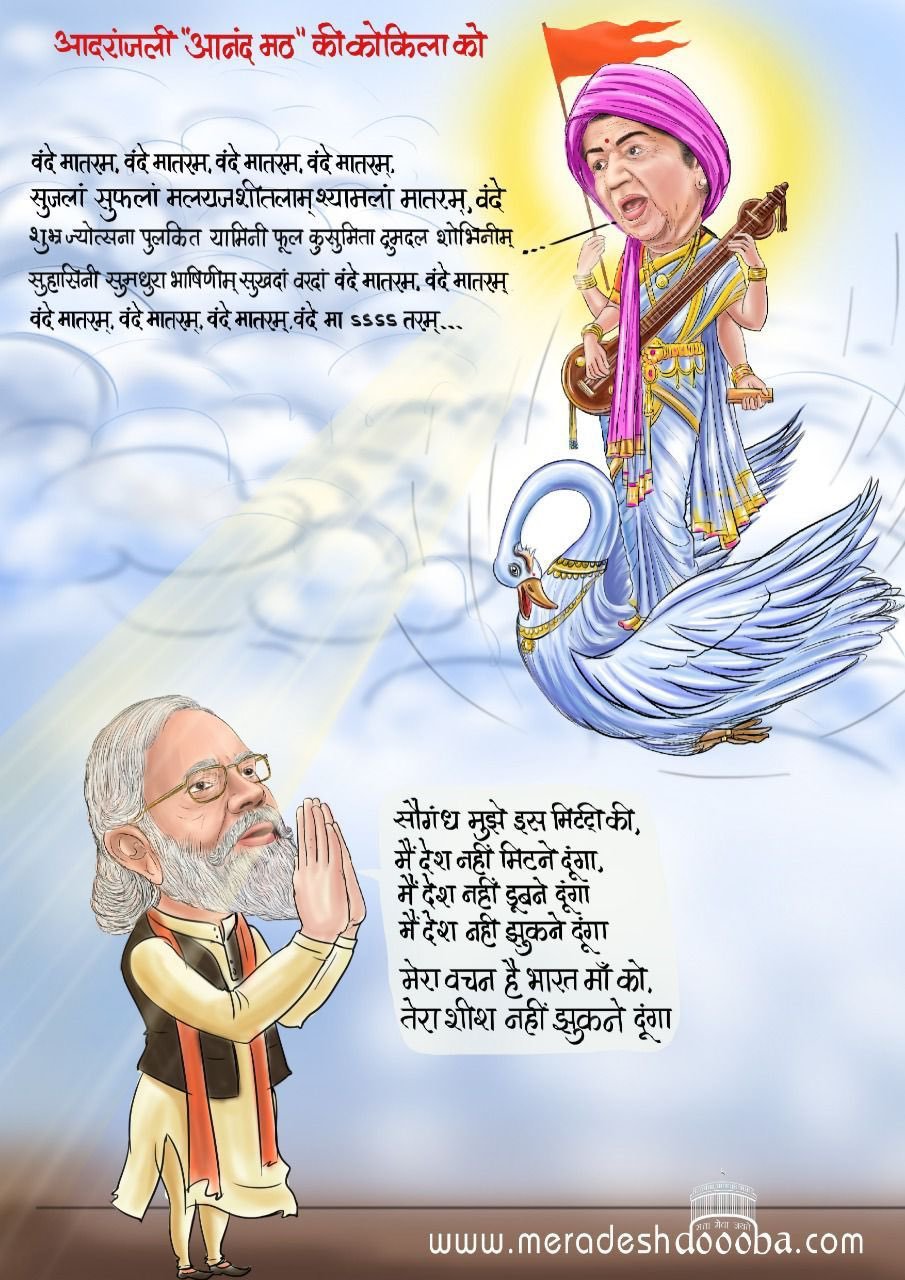 आदरांजली "आनंद मठ" की कोकिला को
वंदे मातरम्, वंदे मातरम्, वंदे मातरम्, वंदे मातरम्,
सुजलां सुफलां मलयजशीतलाम् श्यामलां मातरम्, वंदे
शुभ्र ज्योत्सना पुलकित यामिनी फूल कुसुमिता द्रुमदल शोभिनीम्
सुहासिनी सुमधुरा भाषिणीम् सुखदां वरदां वंदे मातरम, वंदे मातरम्
वंदे मातरम्, वंदे मातरम्, वंदे मातरम्, वंदे मा ऽऽऽऽ तरम्...
सौगंध मुझे इस मिटद्री की,
मैं देश नहीं मिटने दूंगा,
मैं देश नहीं डूबने दूंगा
मैं देश नही झुकने दूंगा
मेरा वचन है भारत माँ को,
तेरा शीश नहीं झुकने दूंगा
सत्ता मेवा जयते
www.meradeshdoooba.com